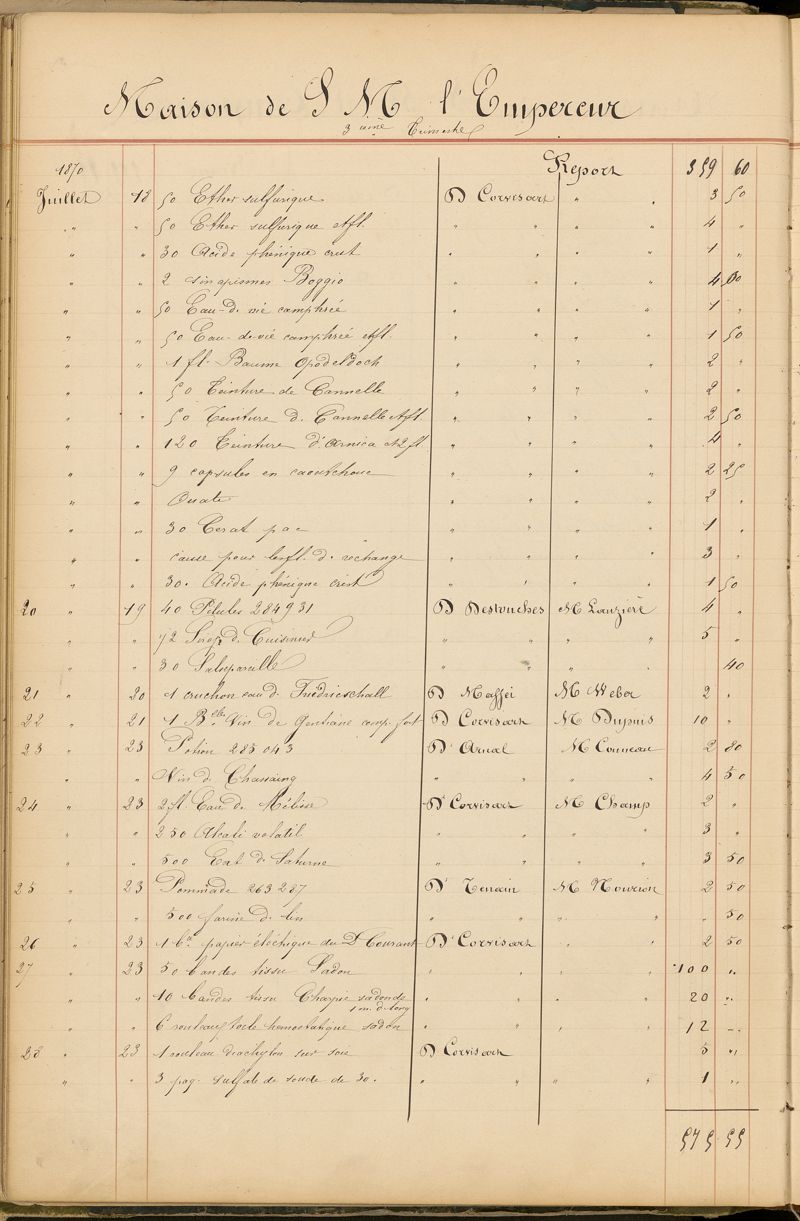 Maison de S M l'Empereur
3eme Trimestre
1870 Report 359 60
Juillet 18 50 Ether sulfurique D Corvisart " " 3 50
" " 50 Ether sulfurique & fl. " " " " 4 "
" " 30 Acide phénique crist " " " " 1 "
" " 2 sinapismes Boggio " " " " 4 80
" " 50 Eau-de vie camphrée " " " " 1 "
" " 50 Eau-de-vie camphrée & fl. " " " " 1 50
" " 1 fl. Baume Opodeldoch " " " " 2 "
" " 50 Teinture de Cannelle " " " " 2 "
" " 50 Teinture d. Cannelle & fl " " " " 2 50
" " 120 Teinture d'Arnica & 2 fl " " " " 4 "
" " 9 capsules en caoutchouc " " " " 2 25
" " Ouate " " " " 2 "
" " 30 Cerat " " " " 1 "
" " caisse pour fl. d. rechange " " " " 3 "
" " 30. Acide phénique crist " " " " 1 50
20 " 19 40 Pilules 284931 D Destouches M Lauzière 4 "
" " 72 Sirop d. Cuisinier " " " " 5 "
" " 30 Salsepareille " " " " 40
21 " 20 1 cruchon eau d. Friedrieschall D Maffei M Weber 2 "
22 " 21 1 Belle Vin de Gentiane comp. fort D Corvisart M Dupuis 10 "
23 " 23 Potion 285043 D Arnal M Conneau 2 80
" " Vin d. Chassaing " " " " 4 50
24 " 23 2 fl. Eau d. Mélisse D Corvisart M Champ 2 "
" " 250 Alcali volatil " " " " 3 "
" " 500 Ext d. Saturne " " " " 3 50
25 " 23 Pommade 263287 D M Nourion 2 50
" " 500 farine de lin " " " " " 50
26 " 23 1 papier électrique du Dr Courant D Corvisart " " 2 50
27 " 23 50 bandes tissu Sadon " " " " 100 "
" " 10 bandes tissu Charpie sadonde " " " " 20 "
1 m. d. long
" " 6 rouleaux toile hemostatique sadon " " " " 12 "
28 " 23 1 rouleau diachylon sur soie D Corvisart 5 "
" " 3 paq. sulfate de soude de 30. " " " " 1 "
575 55